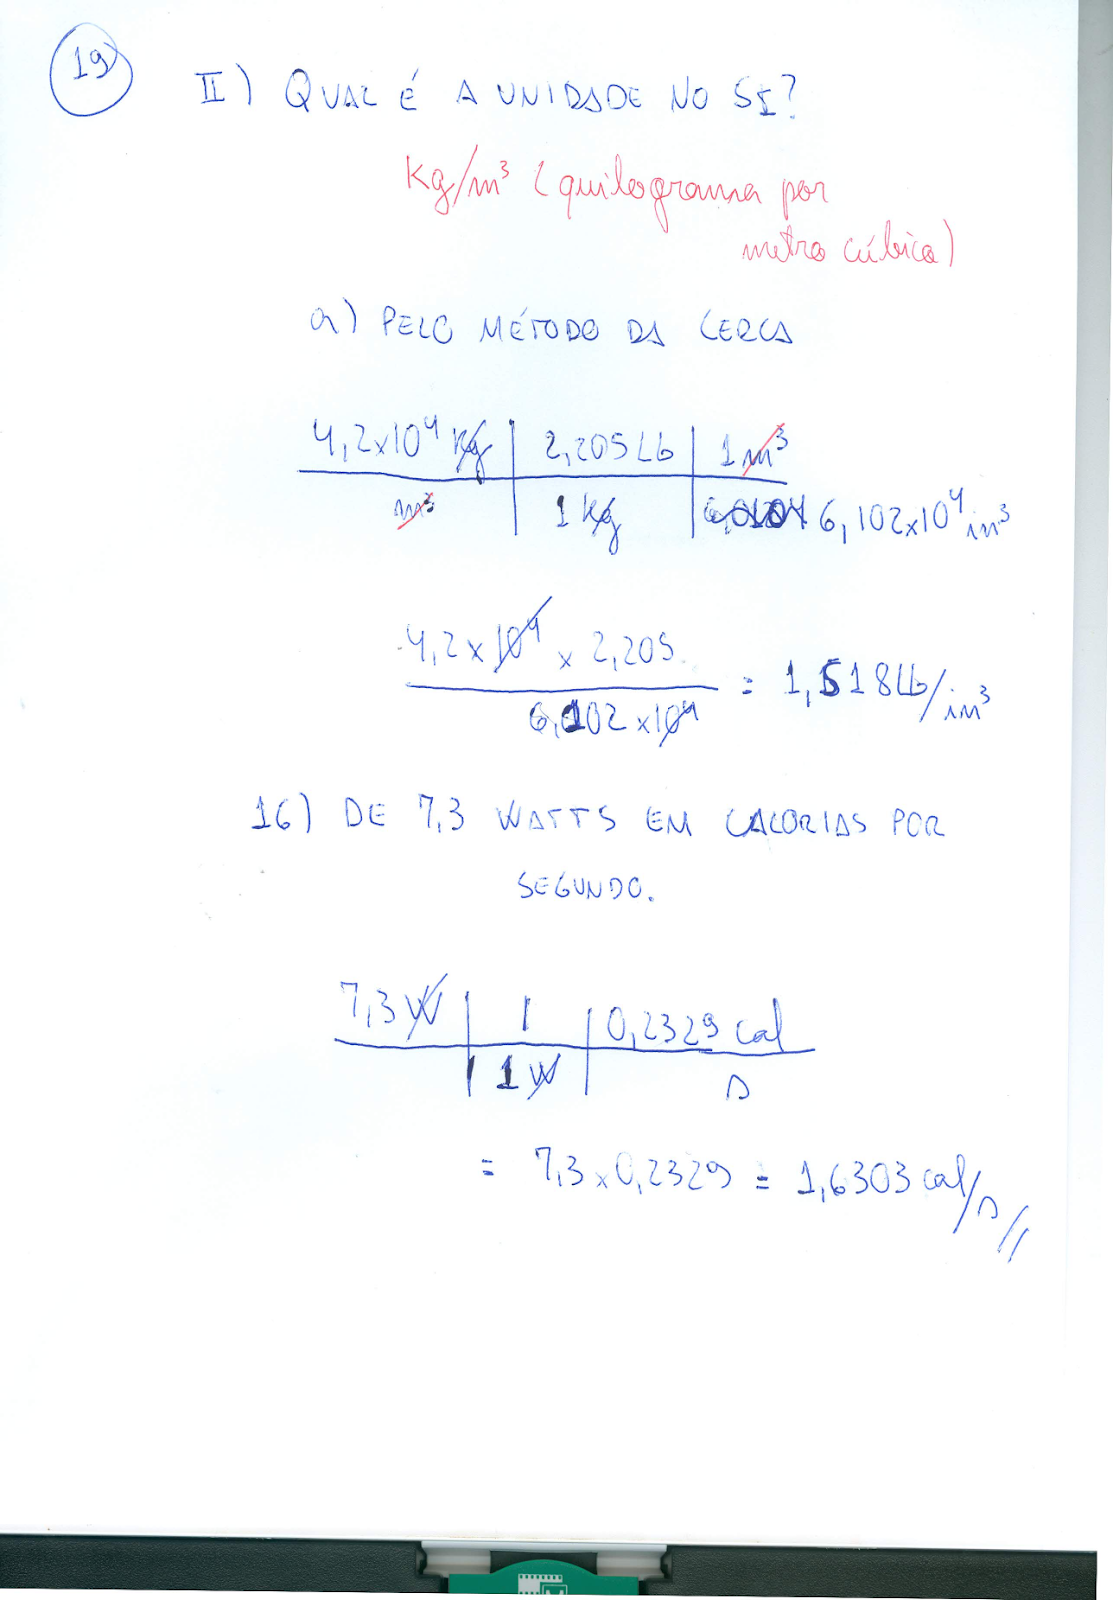 19
II) QUAL É A UNIDADE NO SI?
Kg/m³ (quilograma por
metro cúbico)
a) PELO MÉTODO DA CERCA
4,2x10⁴ Kg | 2,205 Lb | 1 m³
m³ | 1 Kg | 6,102x10⁴ in³
4,2 x 10⁴ x 2,205
6,102 x 10⁴
= 1,518 Lb/in³
16) DE 7,3 WATTS EM CALORIAS POR
SEGUNDO.
7,3 W | 1 | 0,2329 cal
1 W | s
= 7,3 x 0,2329 = 1,6303 cal/s //